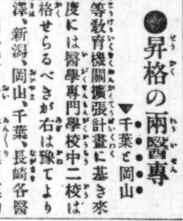 ●昇格の兩醫專
▼千葉と岡山
等敎育機關擴張計畫に基き來
度には醫學專門學校中二校は
格せらるべきが右は豫てより
澤、新潟、岡山、千葉、長崎各醫